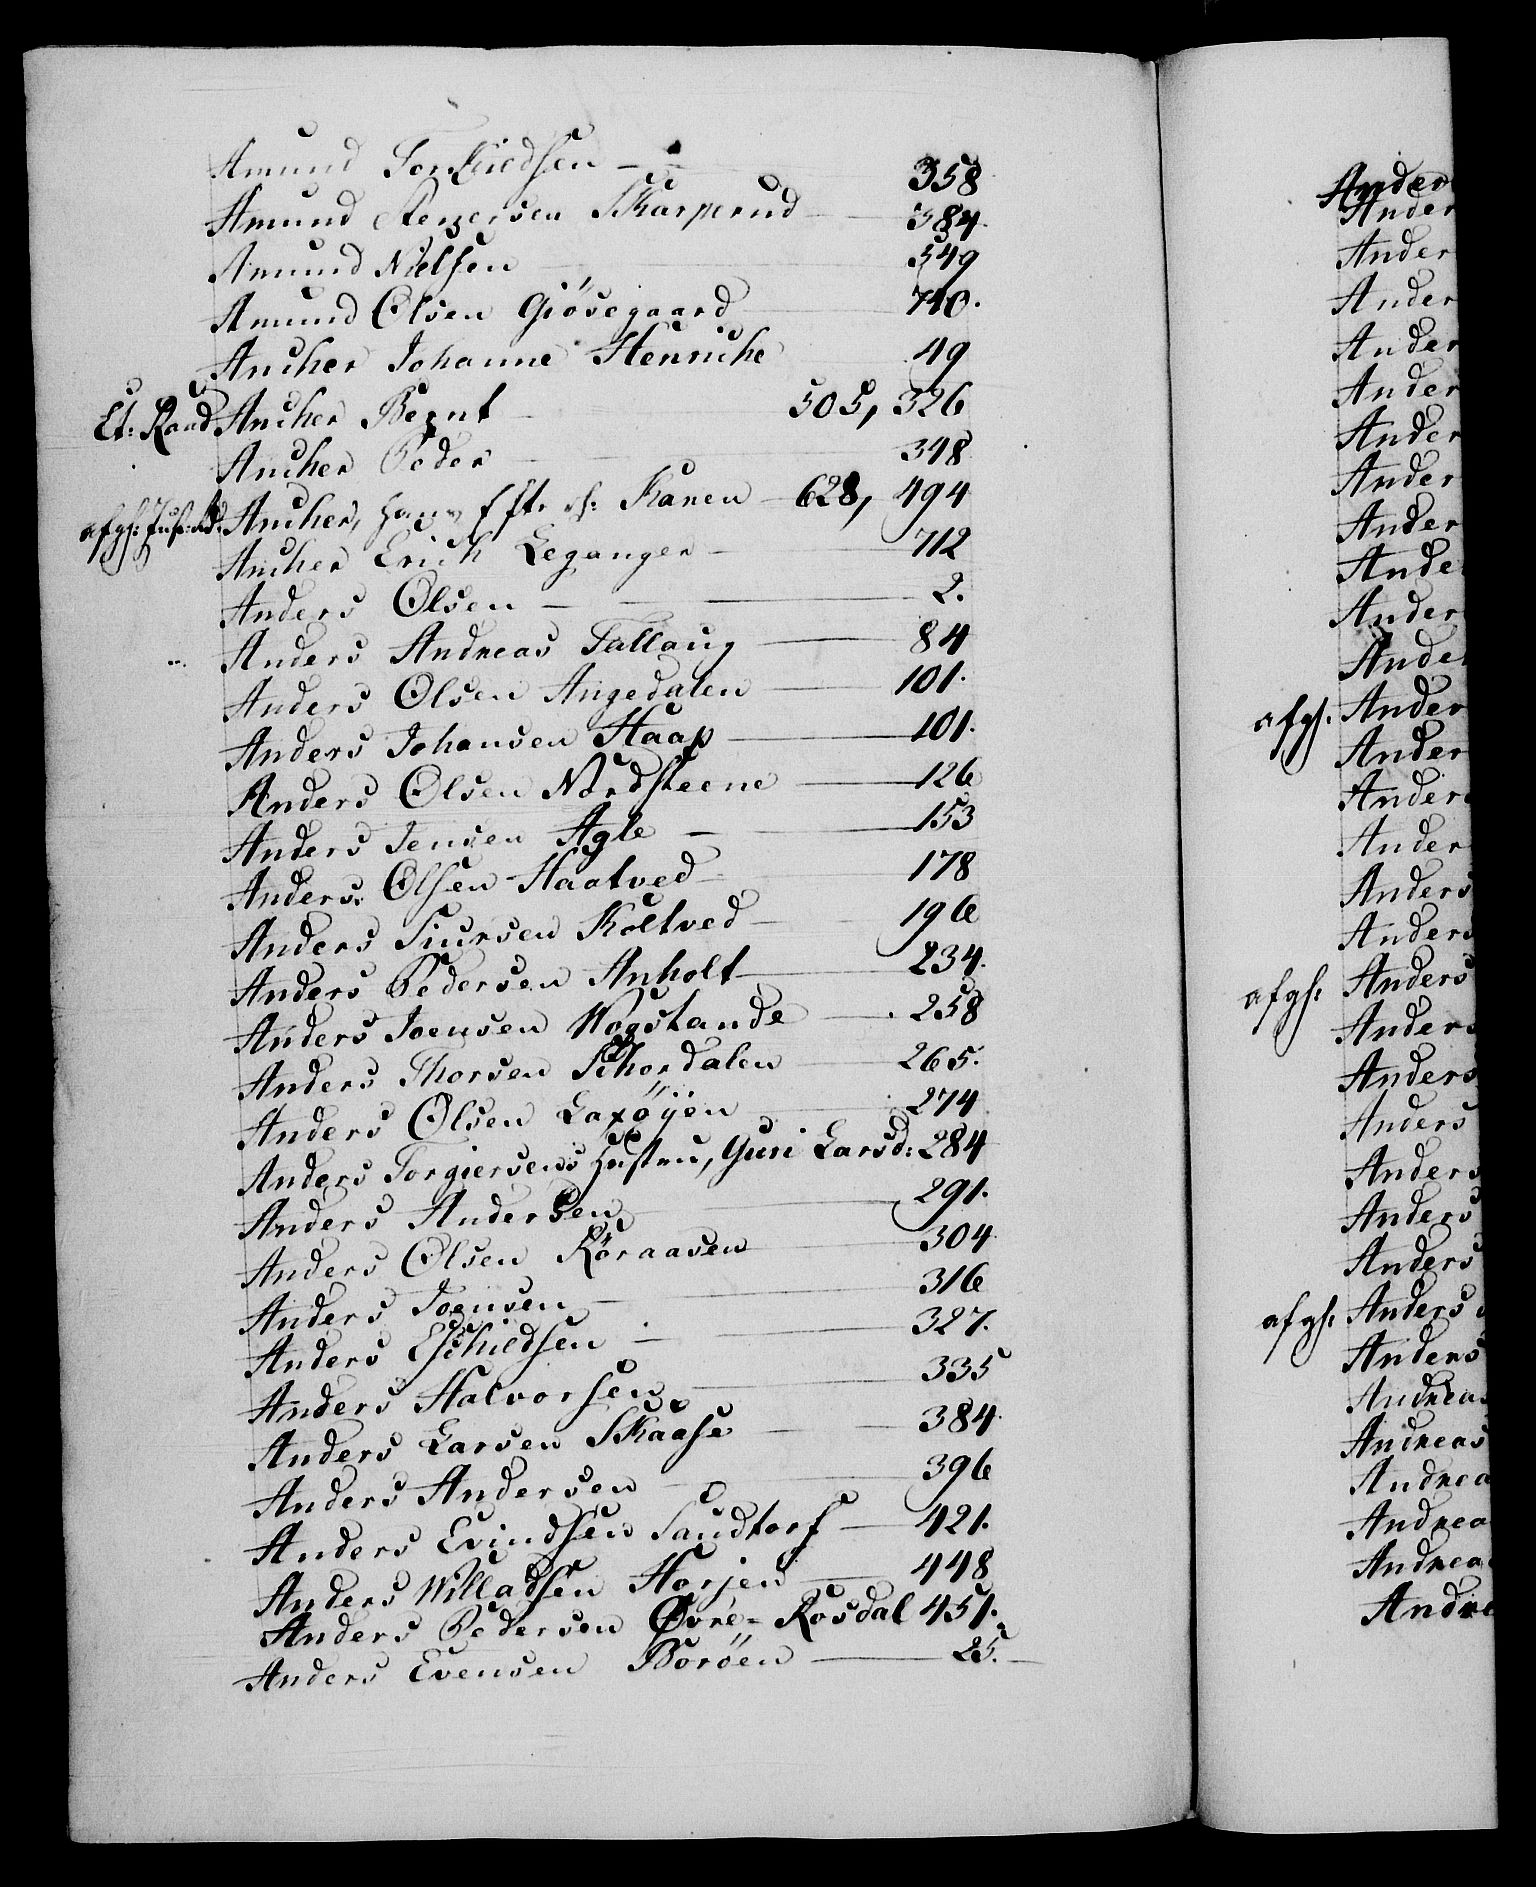 Amund Torkildsen — 358
Amund Pedersen Skarperud — 384.
Amund Nielsen — 549
Amund Olsen Giösegaard — 710.
Ancher Johanne Henriche 49
Et: Raad Ancher Bernt — 505, 326
Ancher Peder — 348
Ancher, Karen — 628, 494
Ancher Erich Leganger — 712
Anders Olsen — 2.
Anders Andreas Fallang — 84
Anders Olsen Angedalen — 101.
Anders Johansen Haap — 101.
Anders Olsen Nordsteene — 126
Anders Jensen Agle — 153
Anders Olsen Haatved — 178
Anders Siursen Koltved — 196
Anders Pedersen Anholt — 234.
Anders Joensen Wogstande — 258
Anders Thorsen Schordalen — 265.
Anders Olsen Laxöyen — 274
Anders Torgiersens Hustru, Guri Larsd: 284
Anders Andersen — 291.
Anders Olsen Röraasen — 304
Anders Joensen — 316
Anders Eschildsen — 327.
Anders Halvorsen — 335
Anders Larsen Skaase — 384.
Anders Andersen — 396
Anders Evindsen Sandtorf — 421.
Anders Willadsen Horjen — 448
Anders Pedersen Øvre-Rosdal 451.
Anders Evensen Boröen — 25.
Ander
Ander
Ander
Ander
Ander
Ander
Ander
Ander
Ander
Ande
Ander
Ande
afgh: Ander
Ander
Ander
Ander
Anders
Anders
afgh: Anders
Anders
Anders
Anders
Anders
Anders
Anders
afgh: Anders
Anders
Andreas
Andreas
Andrea
Andrea
Andrea
Andre